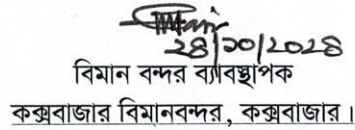 ২৪/১০/২০২৪
বিমান বন্দর ব্যাবস্থাপক
কক্সবাজার বিমানবন্দর, কক্সবাজার।